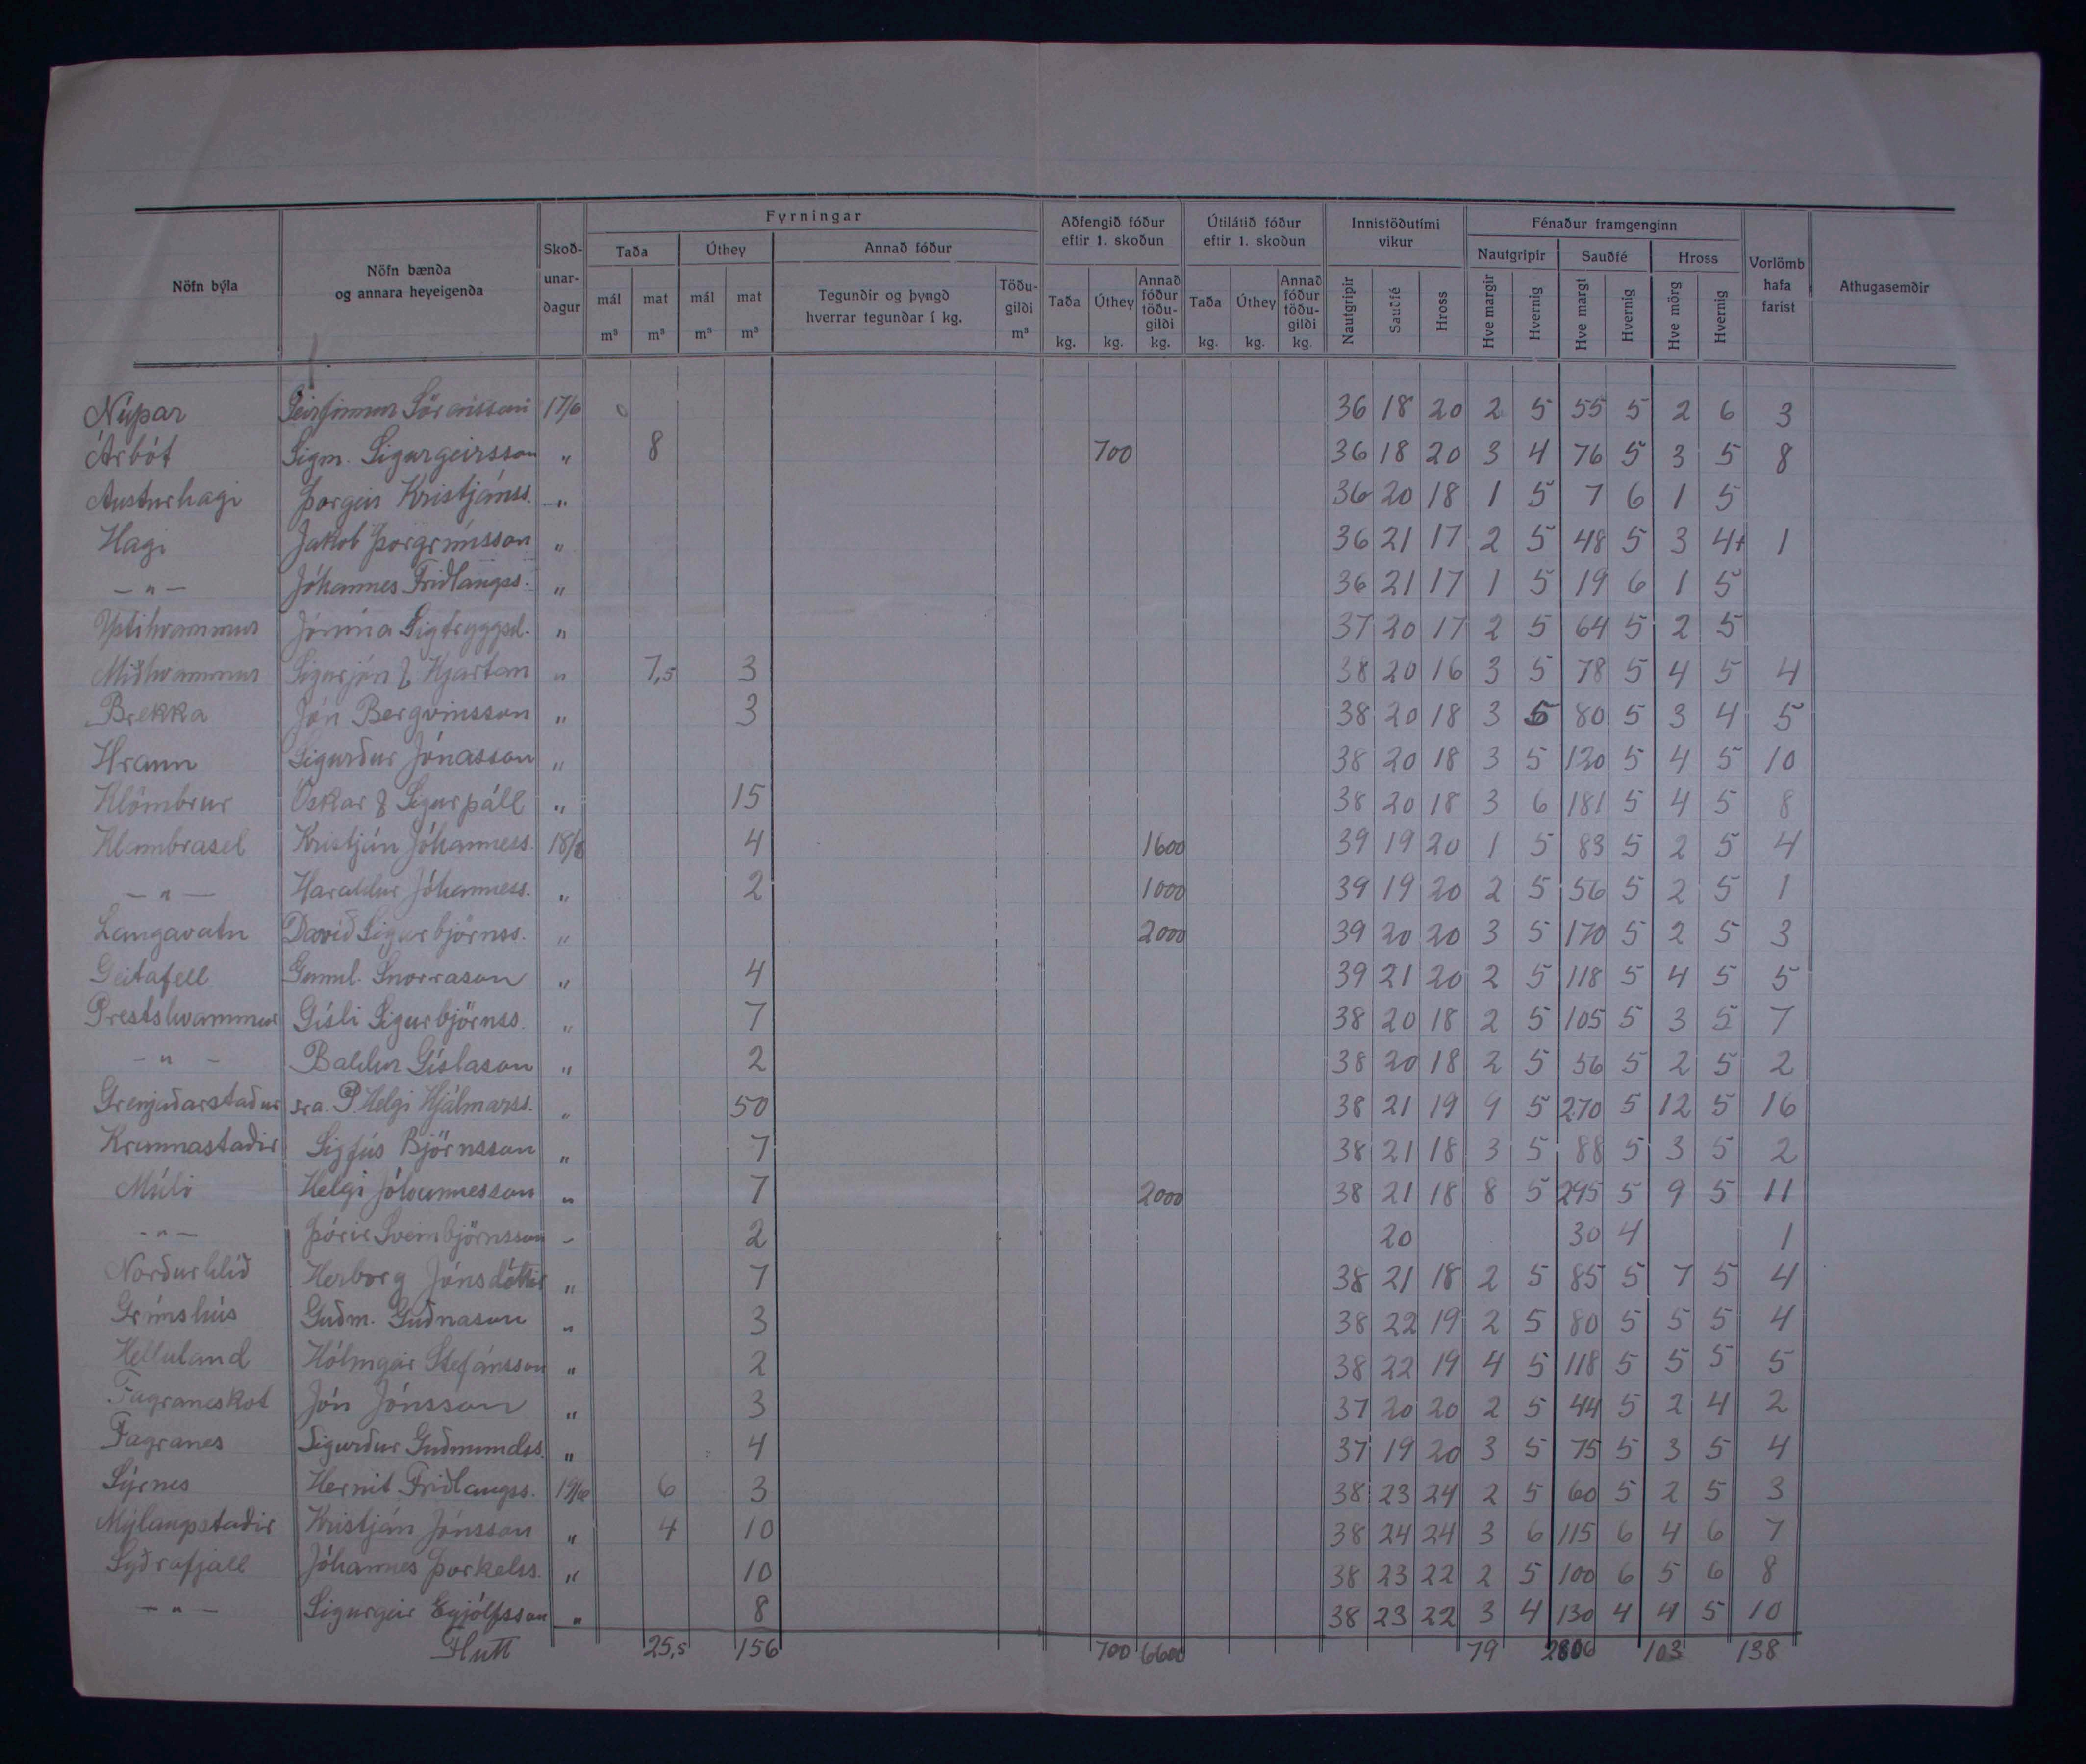 Fyrningar
Aðfengið fóður eftir 1. skoðun
Útilátið fóður eftir 1. skoðun
Innistöðutími vikur
Fénaður framgenginn
Nöfn býla
Nöfn bænda og annara heyeigenda
Skoð-unar-dagur
Taða
Úthey
Annað fóður
Nautgripir
Sauðfé
Hross
Vorlömb hafa farist
Athugasemdir
mál m³
mat m³
mál m³
mat m³
Tegundir og þyngd hverrar tegundar í kg.
Töðu-gildi m³
Taða kg.
Úthey kg.
Annað fóður töðu-gildi kg.
Taða kg.
Úthey kg.
Annað fóður töðu-gildi kg.
Nautgripir
Sauðfé
Hross
Hve margir
Hvernig
Hve margt
Hvernig
Hve mörg
Hvernig
Núpar Geirfinnur 17/6 36 18 20 2 5 55 5 2 6 3
Árbót Sigm. Sigurgeirsson „ 8 700 36 18 20 3 4 76 5 3 5 8
Austurhagi Þorgeir Kristjánss. „ 36 20 18 1 5 7 6 1 5
Hagi Jakob Þorgrímsson „ 36 21 17 2 5 48 5 3 4+ 1
-„- Jóhannes Friðlaugss. „ 36 21 17 1 5 19 6 1 5
Ystihvammur Jónína Sigtryggsd. „ 37 20 17 2 5 64 5 2 5
Miðhvammur Sigurjón & Kjartan „ 7,5 3 38 20 16 3 5 78 5 4 5 4
Brekka Jón Bergvinsson „ 3 38 20 18 3 5 80 5 3 4 5
Hraun Sigurður Jónasson „ 38 20 18 3 5 120 5 4 5 10
Klömbrur Óskar & Sigurpáll „ 15 38 20 18 3 6 181 5 4 5 8
Klambrasel Kristján Jóhanness. 18/6 4 1600 39 19 20 1 5 83 5 2 5 4
-„- Haraldur Jóhanness. „ 2 1000 39 19 20 2 5 56 5 2 5 1
Langavatn Davíð Sigurbjörnss. „ 2000 39 20 20 3 5 170 5 2 5 3
Geitafell Gunnl. Snorrason „ 4 39 21 20 2 5 118 5 4 5 5
Presthvammur Gísli Sigurbjörnss. „ 7 38 20 18 2 5 105 5 3 5 7
-„- Baldur Gíslason „ 2 38 20 18 2 5 56 5 2 5 2
Grenjaðarstaður sra. P. Helgi Hjálmarss. „ 50 38 21 19 9 5 270 5 12 5 16
Kraunastaðir Sigfús Björnsson „ 7 38 21 18 3 5 88 5 3 5 2
Múli Helgi Jóhannesson „ 7 2000 38 21 18 8 5 295 5 9 5 11
-„- Þórir Sveinbjörnsson - 2 20 30 4 1
Norðurhlíð Herborg Jónsdóttir „ 7 38 21 18 2 5 85 5 7 5 4
Grímshús Guðm. Guðnason „ 3 38 22 19 2 5 80 5 5 5 4
Helluland Hólmgeir Stefánsson „ 2 38 22 19 4 5 118 5 5 5 5
Fagraneskot Jón Jónsson „ 3 37 20 20 2 5 44 5 2 4 2
Fagranes Sigurður Guðmundss. „ 4 37 19 20 3 5 75 5 3 5 4
Sýrnes Hernit Friðlaugss. 19/6 6 3 38 23 24 2 5 60 5 2 5 3
Mýlaugsstaðir Kristján Jónsson „ 4 10 38 24 24 3 6 115 6 4 6 7
Syðrafjall Jóhannes Þorkelss. „ 10 38 23 22 2 5 100 6 5 6 8
-„- Sigurgeir Eyjólfsson „ 8 38 23 22 3 4 130 4 4 5 10
Flutt 25,5 156 700 6600 79 2806 103 138